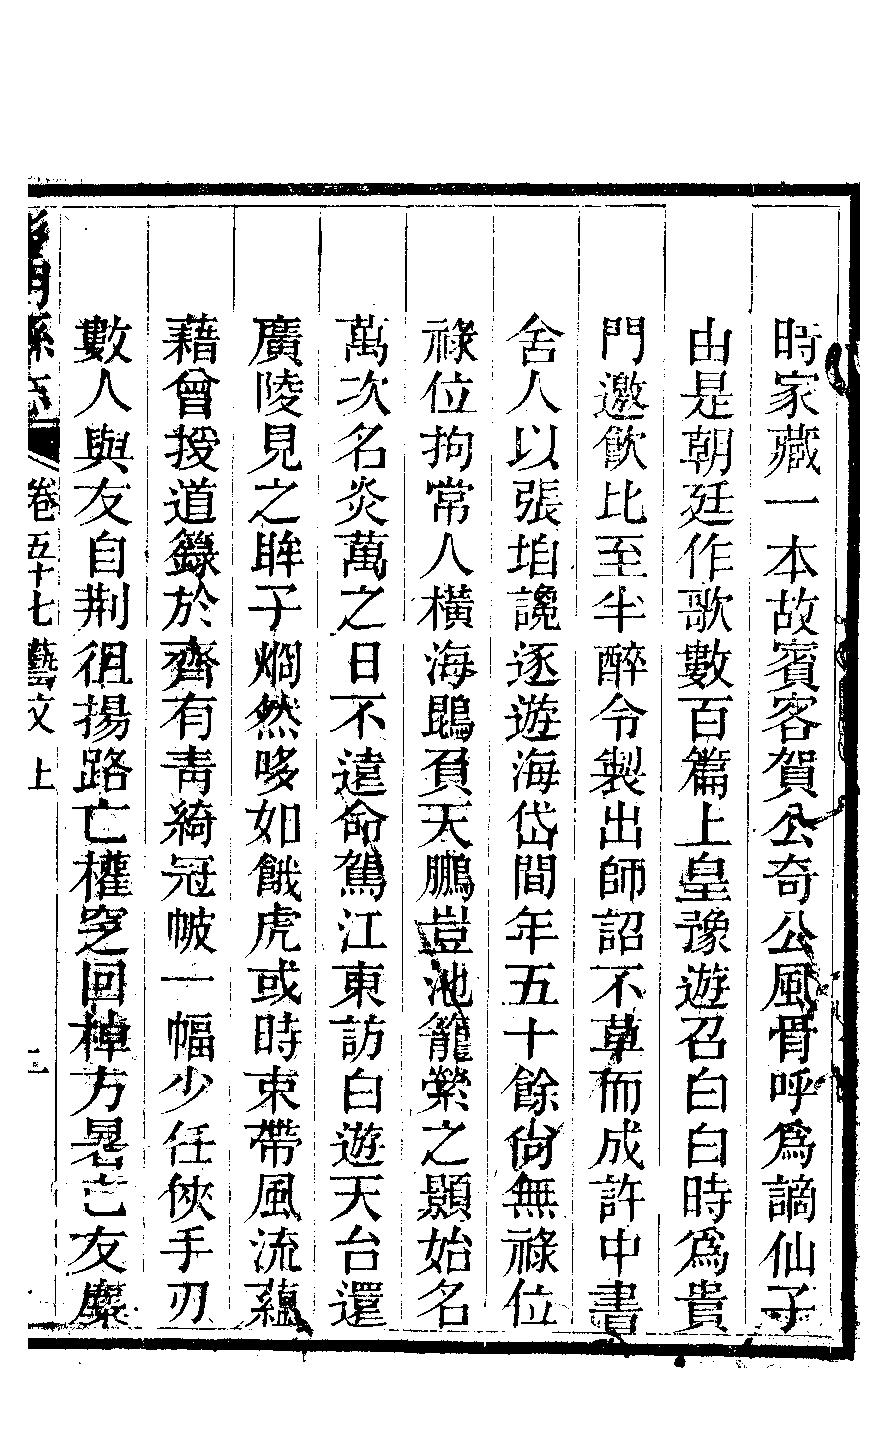 時家藏一本故賓客賀公奇公風骨呼爲謫仙子
由是朝廷作歌數百篇上皇豫遊召白白時爲貴
門邀飮比至半醉令製出師詔不草而成許中書
舍人以張垍讒逐遊海岱間年五十餘尙無祿位
祿位拘常人橫海鵾負天鵬豈池籠縈之顥始名
萬次名炎萬之日不遠命駕江東訪白遊天台還
廣陵見之眸子烱然哆如餓虎或時束帶風流蘊
藉曾授道籙於齊有靑綺冠帔一幅少任俠手刃
數人與友自荆徂揚路亡權窆回棹方暑亡友糜
縣志 卷五十七 藝文上 二